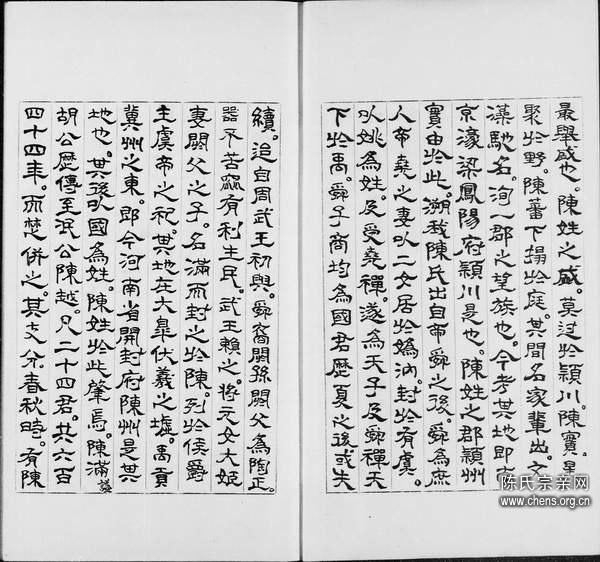 最舉盛也。陳姓之盛。莫过於潁川。陳寔。星
聚於野。陳蕃下榻於庭。其間名家輩出。文
藻馳名。洵一郡之望族也。今考其地即
京濠梁鳳陽府潁川是也。陳姓之郡潁州
實由於此。溯我陳氏出自帝舜之後。舜為庶
人帝堯之妻以二女居於媯汭。封於有虞。
以姚為姓。及受堯禪。遂為天子及舜禪天
下於禹。舜子商均為國君歷夏之後或失
續。迨自周武王初興。舜裔閼孫閼父為陶正。
器不苦窳有利生民。武王賴之。將元女大姬
妻閼父之子。名滿而封之於陳。列於侯爵
主虞帝之祀。其地在大皞伏羲之墟。禹貢
冀州之東。即今河南省開封府陳州是其
地也。其後以國為姓。陳姓於此肇焉。陳滿謚
胡公歷傳至泯公陳越。凡二十四君。共六百
四十四年。而楚併之。其支分春秋時。有陳
陈氏宗亲网
www.chens.org.cn